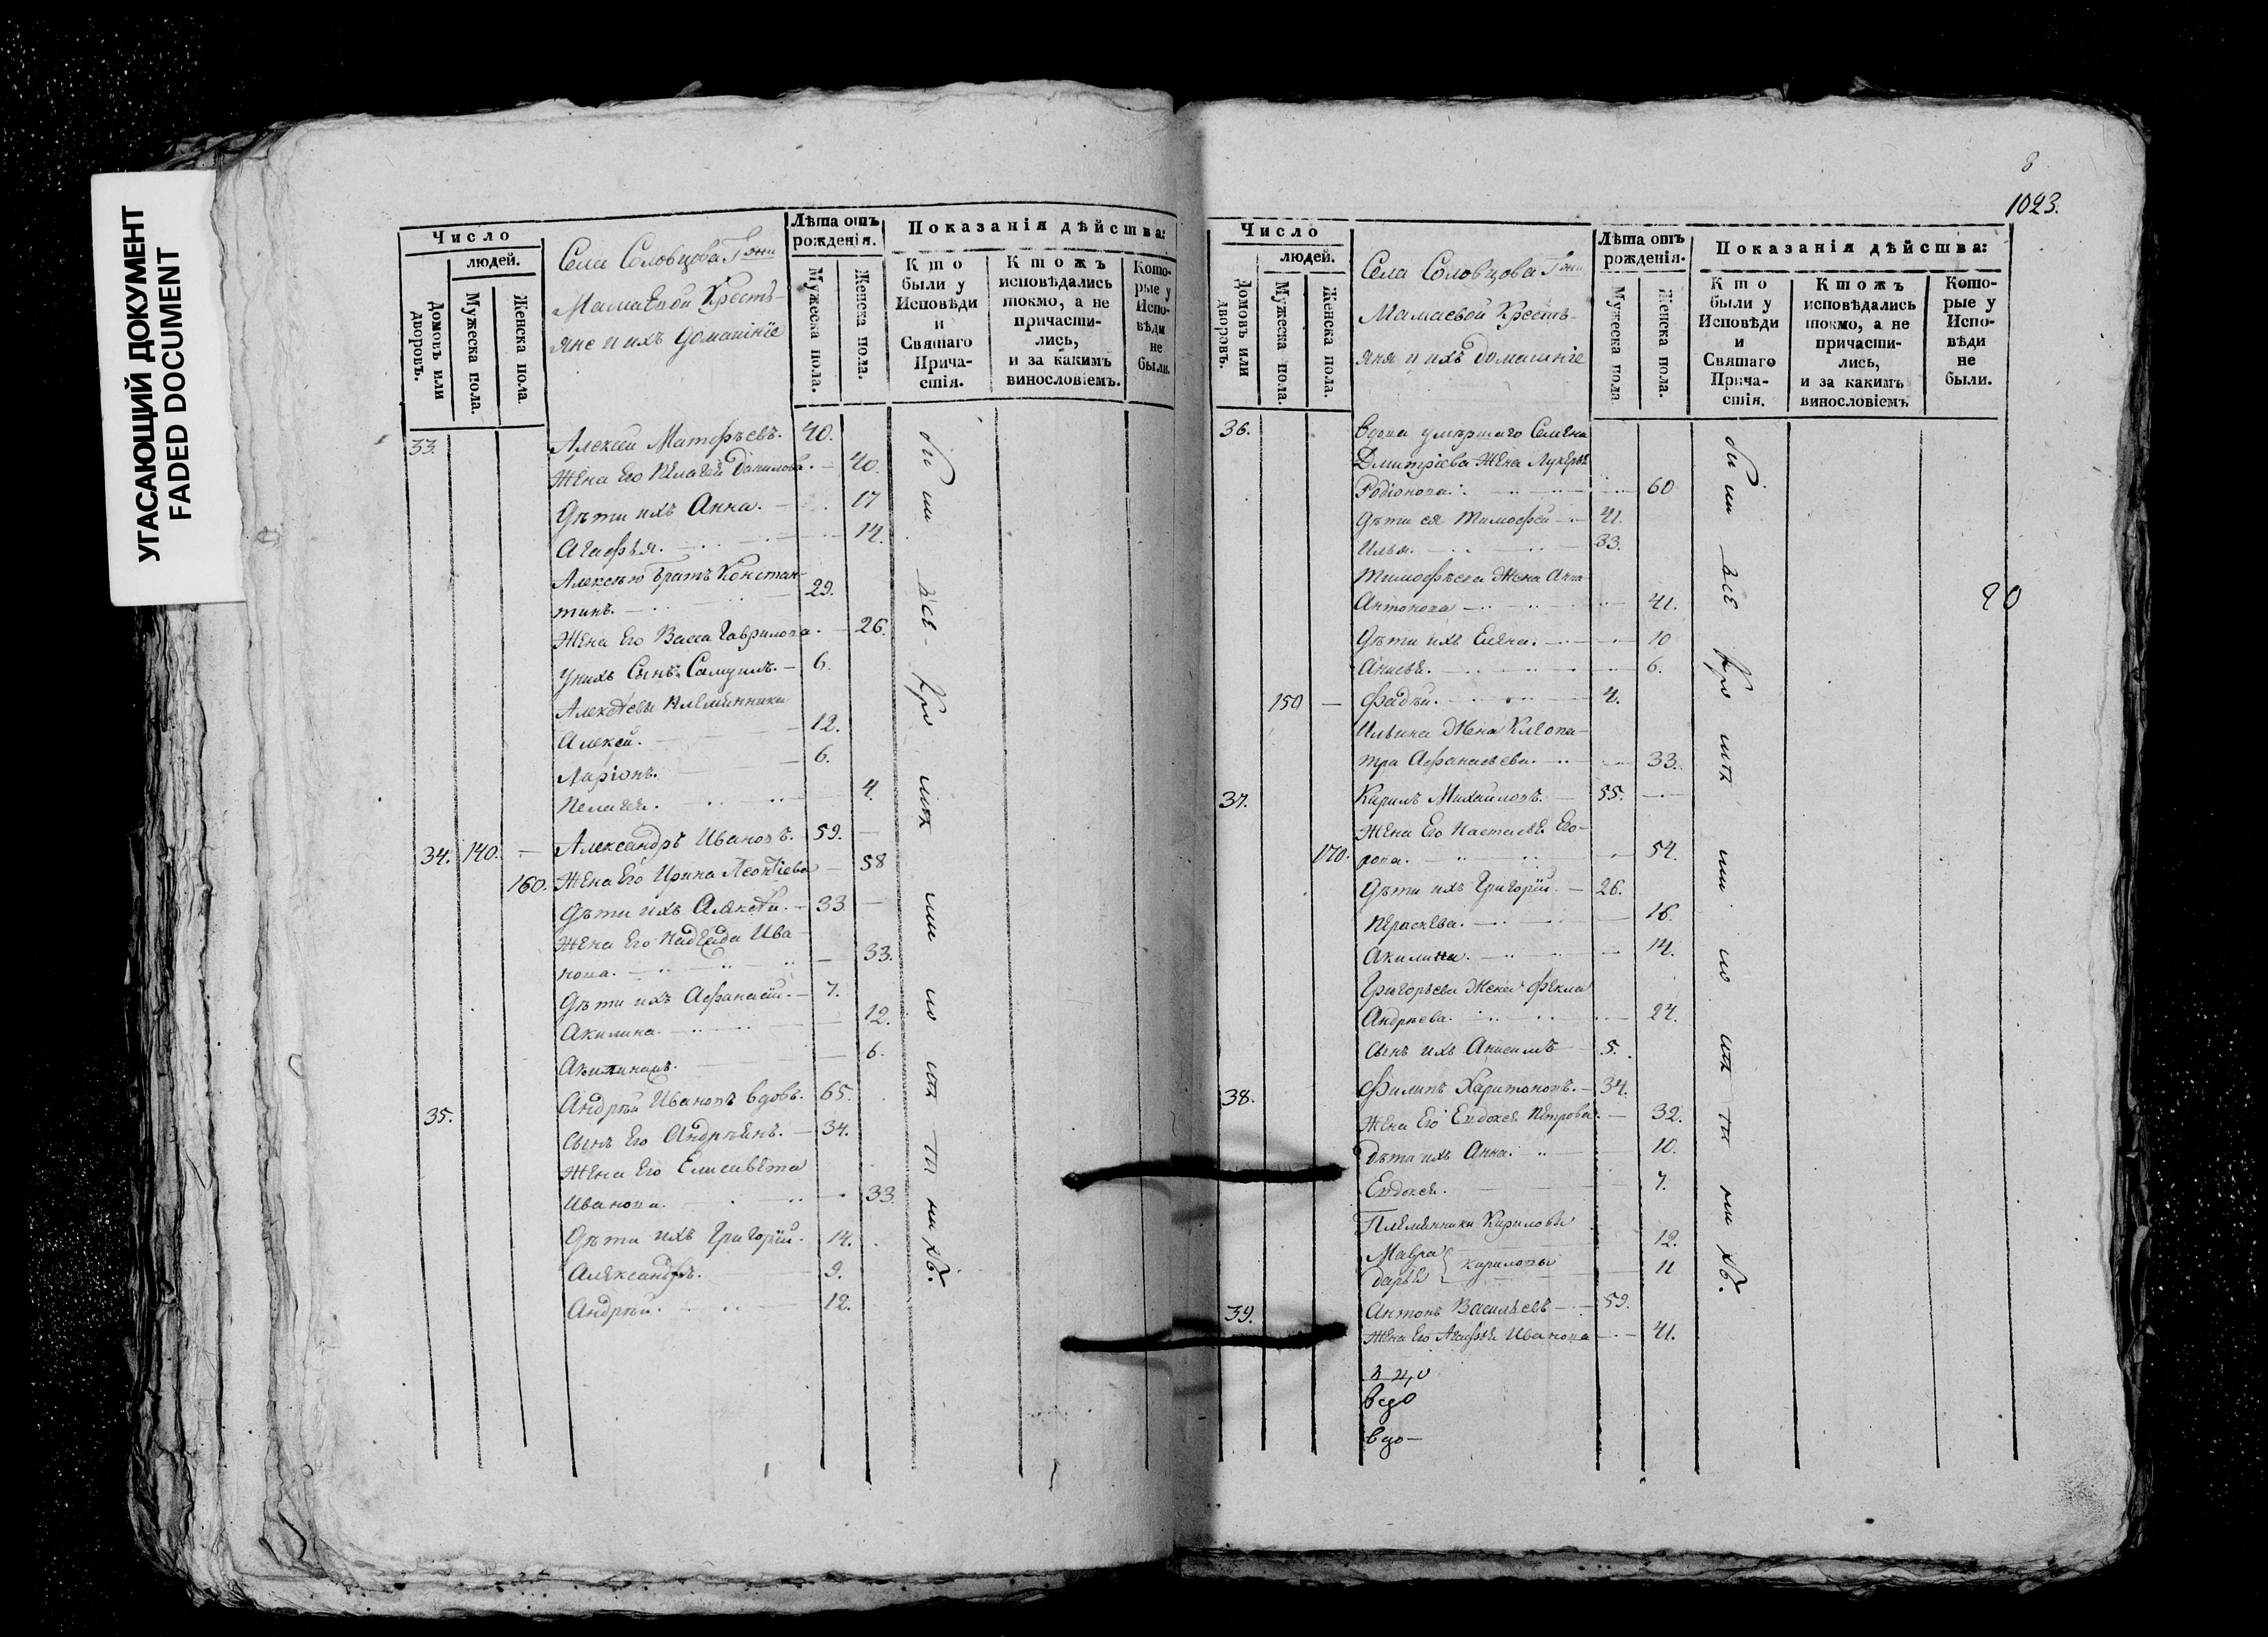 УГАСАЮЩИЙ ДОКУМЕНТ
FADED DOCUMENT
Число
людей.
Домовъ или дворовъ.
Мужеска пола.
Женска пола.
Села Соловцова Гжи
Мамаевой Крестъ-
яне и ихъ домашнїе
Лѣта отъ рожденія.
Мужеска пола.
Женска пола.
Показанія дѣйства:
Кто были у Исповѣди и Святаго Причастія.
Ктожъ исповѣдались токмо, а не причастились, и за какимъ винословіемъ.
Которые у Исповѣди не были.
33. Алексей Матфѣевъ. 40.
Жена Его Пелагея Данилова. 40.
Дѣти ихъ Анна. 17
Агафья. 14.
Алексѣю братъ Констан-
тинъ. 29.
Жена Его Васса Гаврилова. 26.
У нихъ Сынъ Самуилъ. 6.
Алексѣевы племянники
Алексей. 12.
Ларіонъ. 6.
Пелагея. 4.
34. 140. Александръ Ивановъ. 59.
160. Жена Его Ирина Леонтіева 58
Дѣти ихъ Алексѣй. 33
Жена Его Надежда Ива-
нова. 33.
Дѣти ихъ Афанасій. 7.
Акилина. 12.
6.
35. Андрѣй Ивановъ вдовъ. 65.
Сынъ Его Андрѣянъ. 34.
Жена Его Елисавета
Иванова. 33.
Дѣти ихъ Григорій. 14.
Александръ. 9.
Андрѣй. 12.
бы ли всѣ кро мѣ ма ло лѣт ни хъ.
8
1023.
Число
людей.
Домовъ или дворовъ.
Мужеска пола.
Женска пола.
Села Соловцова Гжи
Мамаевой Крестъ-
яня и ихъ домашнїе
Лѣта отъ рожденія.
Мужеска пола.
Женска пола.
Показанія дѣйства:
Кто были у Исповѣди и Святаго Причастія.
Ктожъ исповѣдались токмо, а не причастились, и за какимъ винословіемъ
Которые у Исповѣди не были.
36. Вдова умершаго Семена
Дмитріева Жена Лукерья
Родіонова. 60
Дѣти ея Тимофей 41.
Илья. 33.
Тимофѣева Жена Анна
Антонова 41.
Дѣти ихъ Елена. 10
6.
150 Фадѣй. 4.
Ильина Жена Клеопа-
тра Афанасьева. 33.
37. Кирилъ Михайловъ. 55.
Жена Его Наталья Его-
170. рова. 54.
Дѣти ихъ Григорій. 26.
Пераскева. 16.
Акилина. 14.
Григорьева Жена Фекла
Андрѣева. 24.
Сынъ ихъ Анисимъ 5.
38. Филипъ Харитоновъ. 34.
Жена Его Евдокея Петрова. 32.
Дѣти ихъ Анна. 10.
Евдокея. 7.
Племянники Кириловы
Мавра 12.
Дарья Кириловы 11
39. Антонъ Васильевъ 59.
Жена Его Агафья Иванова 41.
бы ли всѣ кро мѣ ма ло лѣт ни хъ.
вдо
вдо